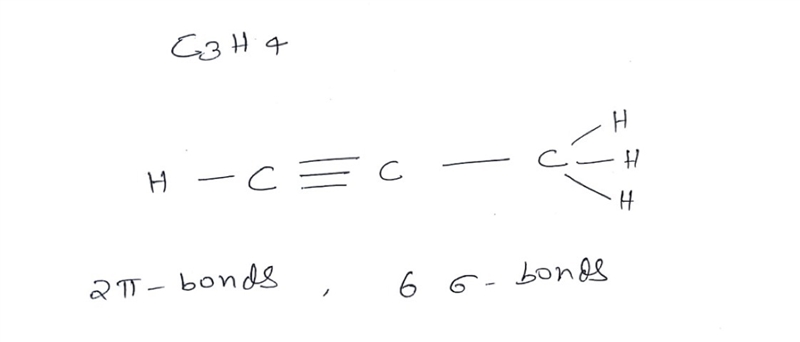 C3H4
H
H — C ≡ C — C — H
H
2π - bonds , 6 σ - bonds